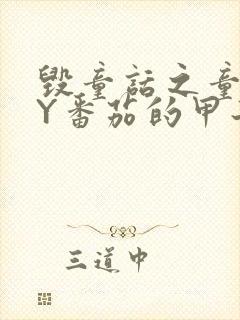 毁童话之童
Y番茄的甲
三道中